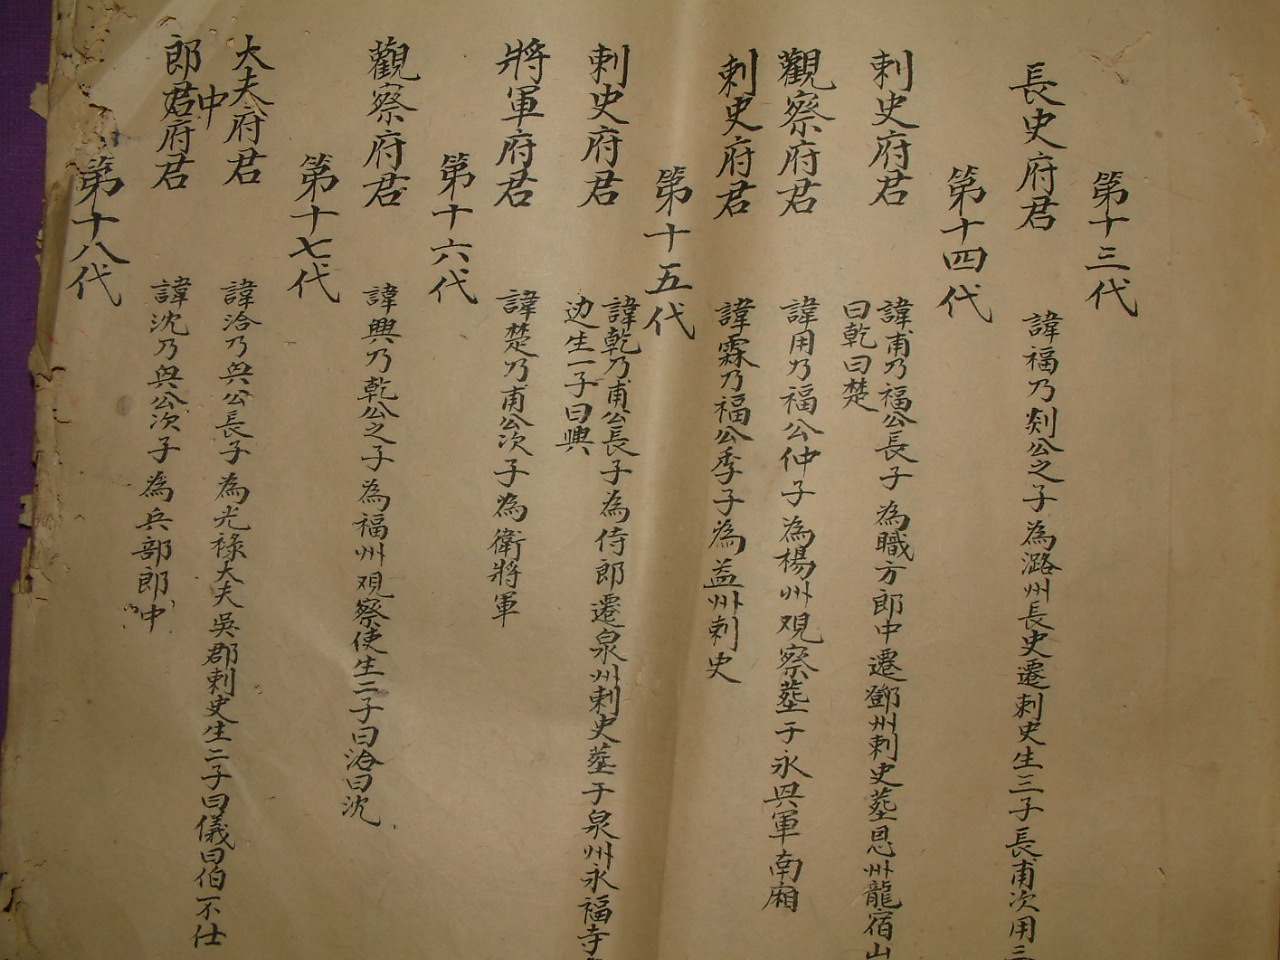 第十三代
長史府君
諱福乃剡公之子為潞州長史遷刺史生三子長甫次用三
第十四代
刺史府君
諱甫乃福公長子為職方郎中遷鄧州刺史墓恩州龍宿山
曰乾曰楚
觀察府君
諱用乃福公仲子為楊州观察墓于永兴軍南廂
刺史府君
諱霖乃福公季子為益州刺史
第十五代
刺史府君
諱乾乃甫公長子為侍郎遷泉州刺史墓于泉州永福寺
边生一子曰興
將軍府君
諱楚乃甫公次子為衛將軍
第十六代
觀察府君
諱興乃乾公之子為福州观察使生二子曰洽曰沈
第十七代
大夫府君
諱洽乃兴公長子為光祿大夫吳郡刺史生二子曰儀曰伯不仕
郎中府君
諱沈乃兴公次子為兵部郎中
第十八代